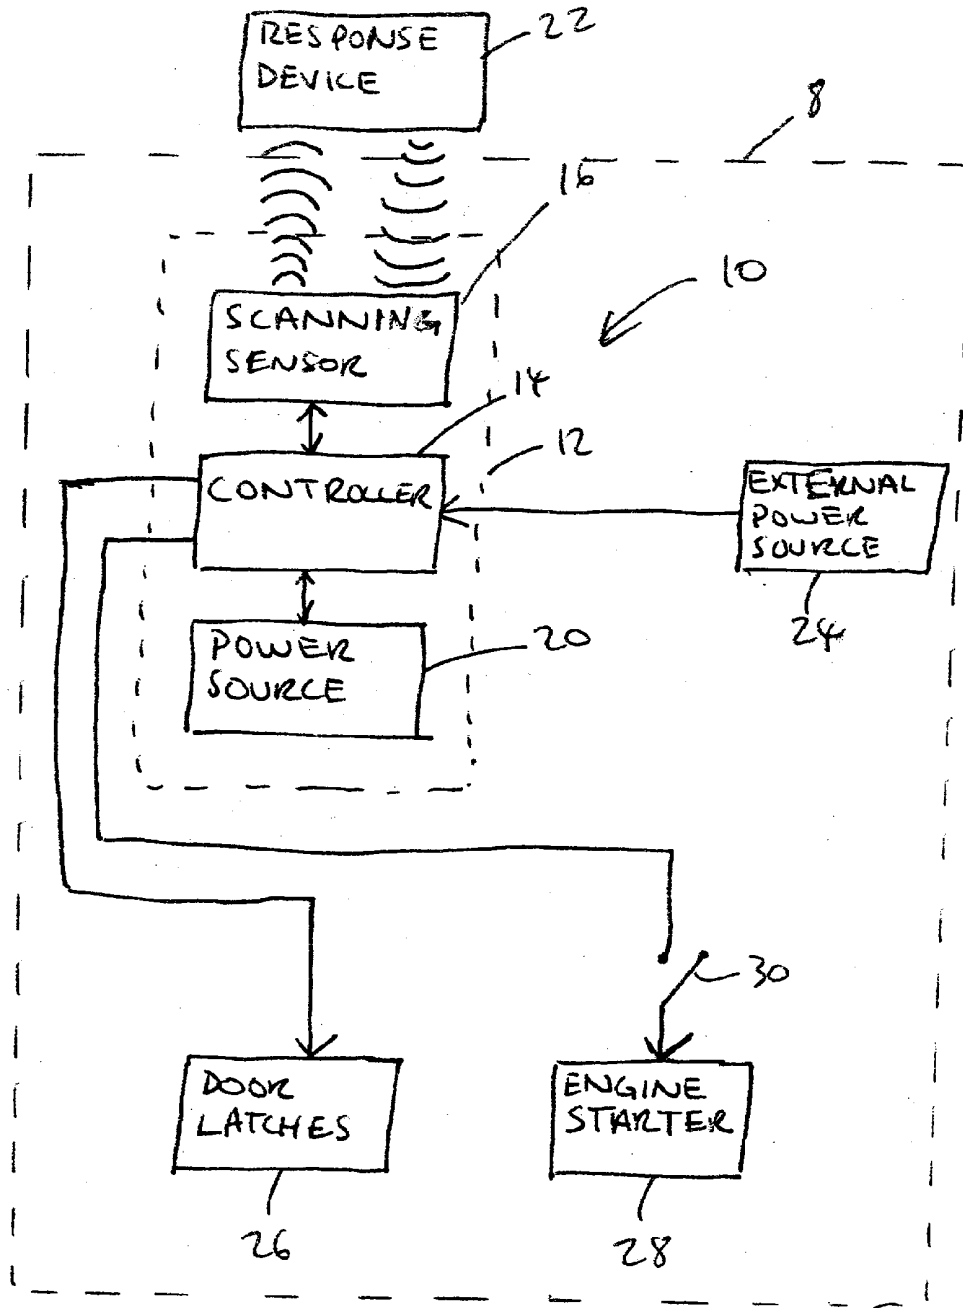 RESPONSE
DEVICE
22
8
16
10
SCANNING
SENSOR
14
12
CONTROLLER
EXTERNAL
POWER
SOURCE
24
20
POWER
SOURCE
30
DOOR
LATCHES
ENGINE
STARTER
26
28